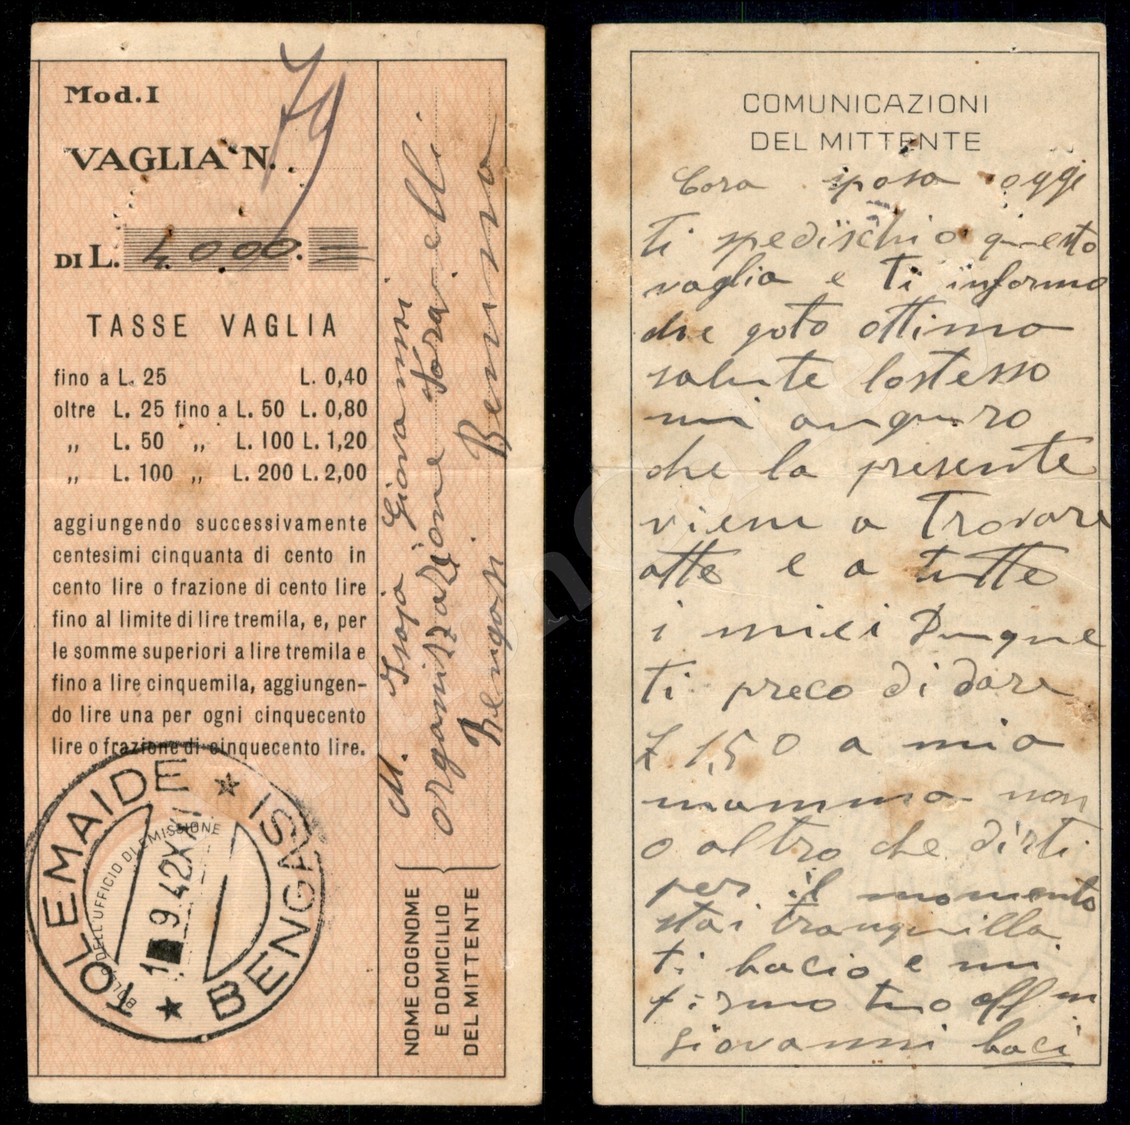 Mod. I
VAGLIA N. 79
DI L. 4000. =
TASSE VAGLIA
fino a L. 25 L. 0,40
oltre L. 25 fino a L. 50 L. 0,80
,, L. 50 ,, L. 100 L. 1,20
,, L. 100 ,, L. 200 L. 2,00
aggiungendo successivamente
centesimi cinquanta di cento in
cento lire o frazione di cento lire
fino al limite di lire tremila, e, per
le somme superiori a lire tremila e
fino a lire cinquemila, aggiungen-
do lire una per ogni cinquecento
lire o frazione di cinquecento lire.
TOLEMAIDE ★ BENGASI ★
BOLLO DELL'UFFICIO DI EMISSIONE
1 9.42XX
NOME COGNOME
E DOMICILIO
DEL MITTENTE
M. Giovanni
organizzazione
Bengasi
COMUNICAZIONI
DEL MITTENTE
Cara sposa oggi
ti spedischio questo
vaglia e ti informo
che goto ottimo
salute lostesso
mi anguro
che la presente
viene a trovare
atte e a tutte
i miei Dunque
ti preco di dare
£ 150 a mia
mamma non
o altro che dirti
per il momento
stai tranquilla
ti bacio e mi
firmo tuo aff m
giovanni baci